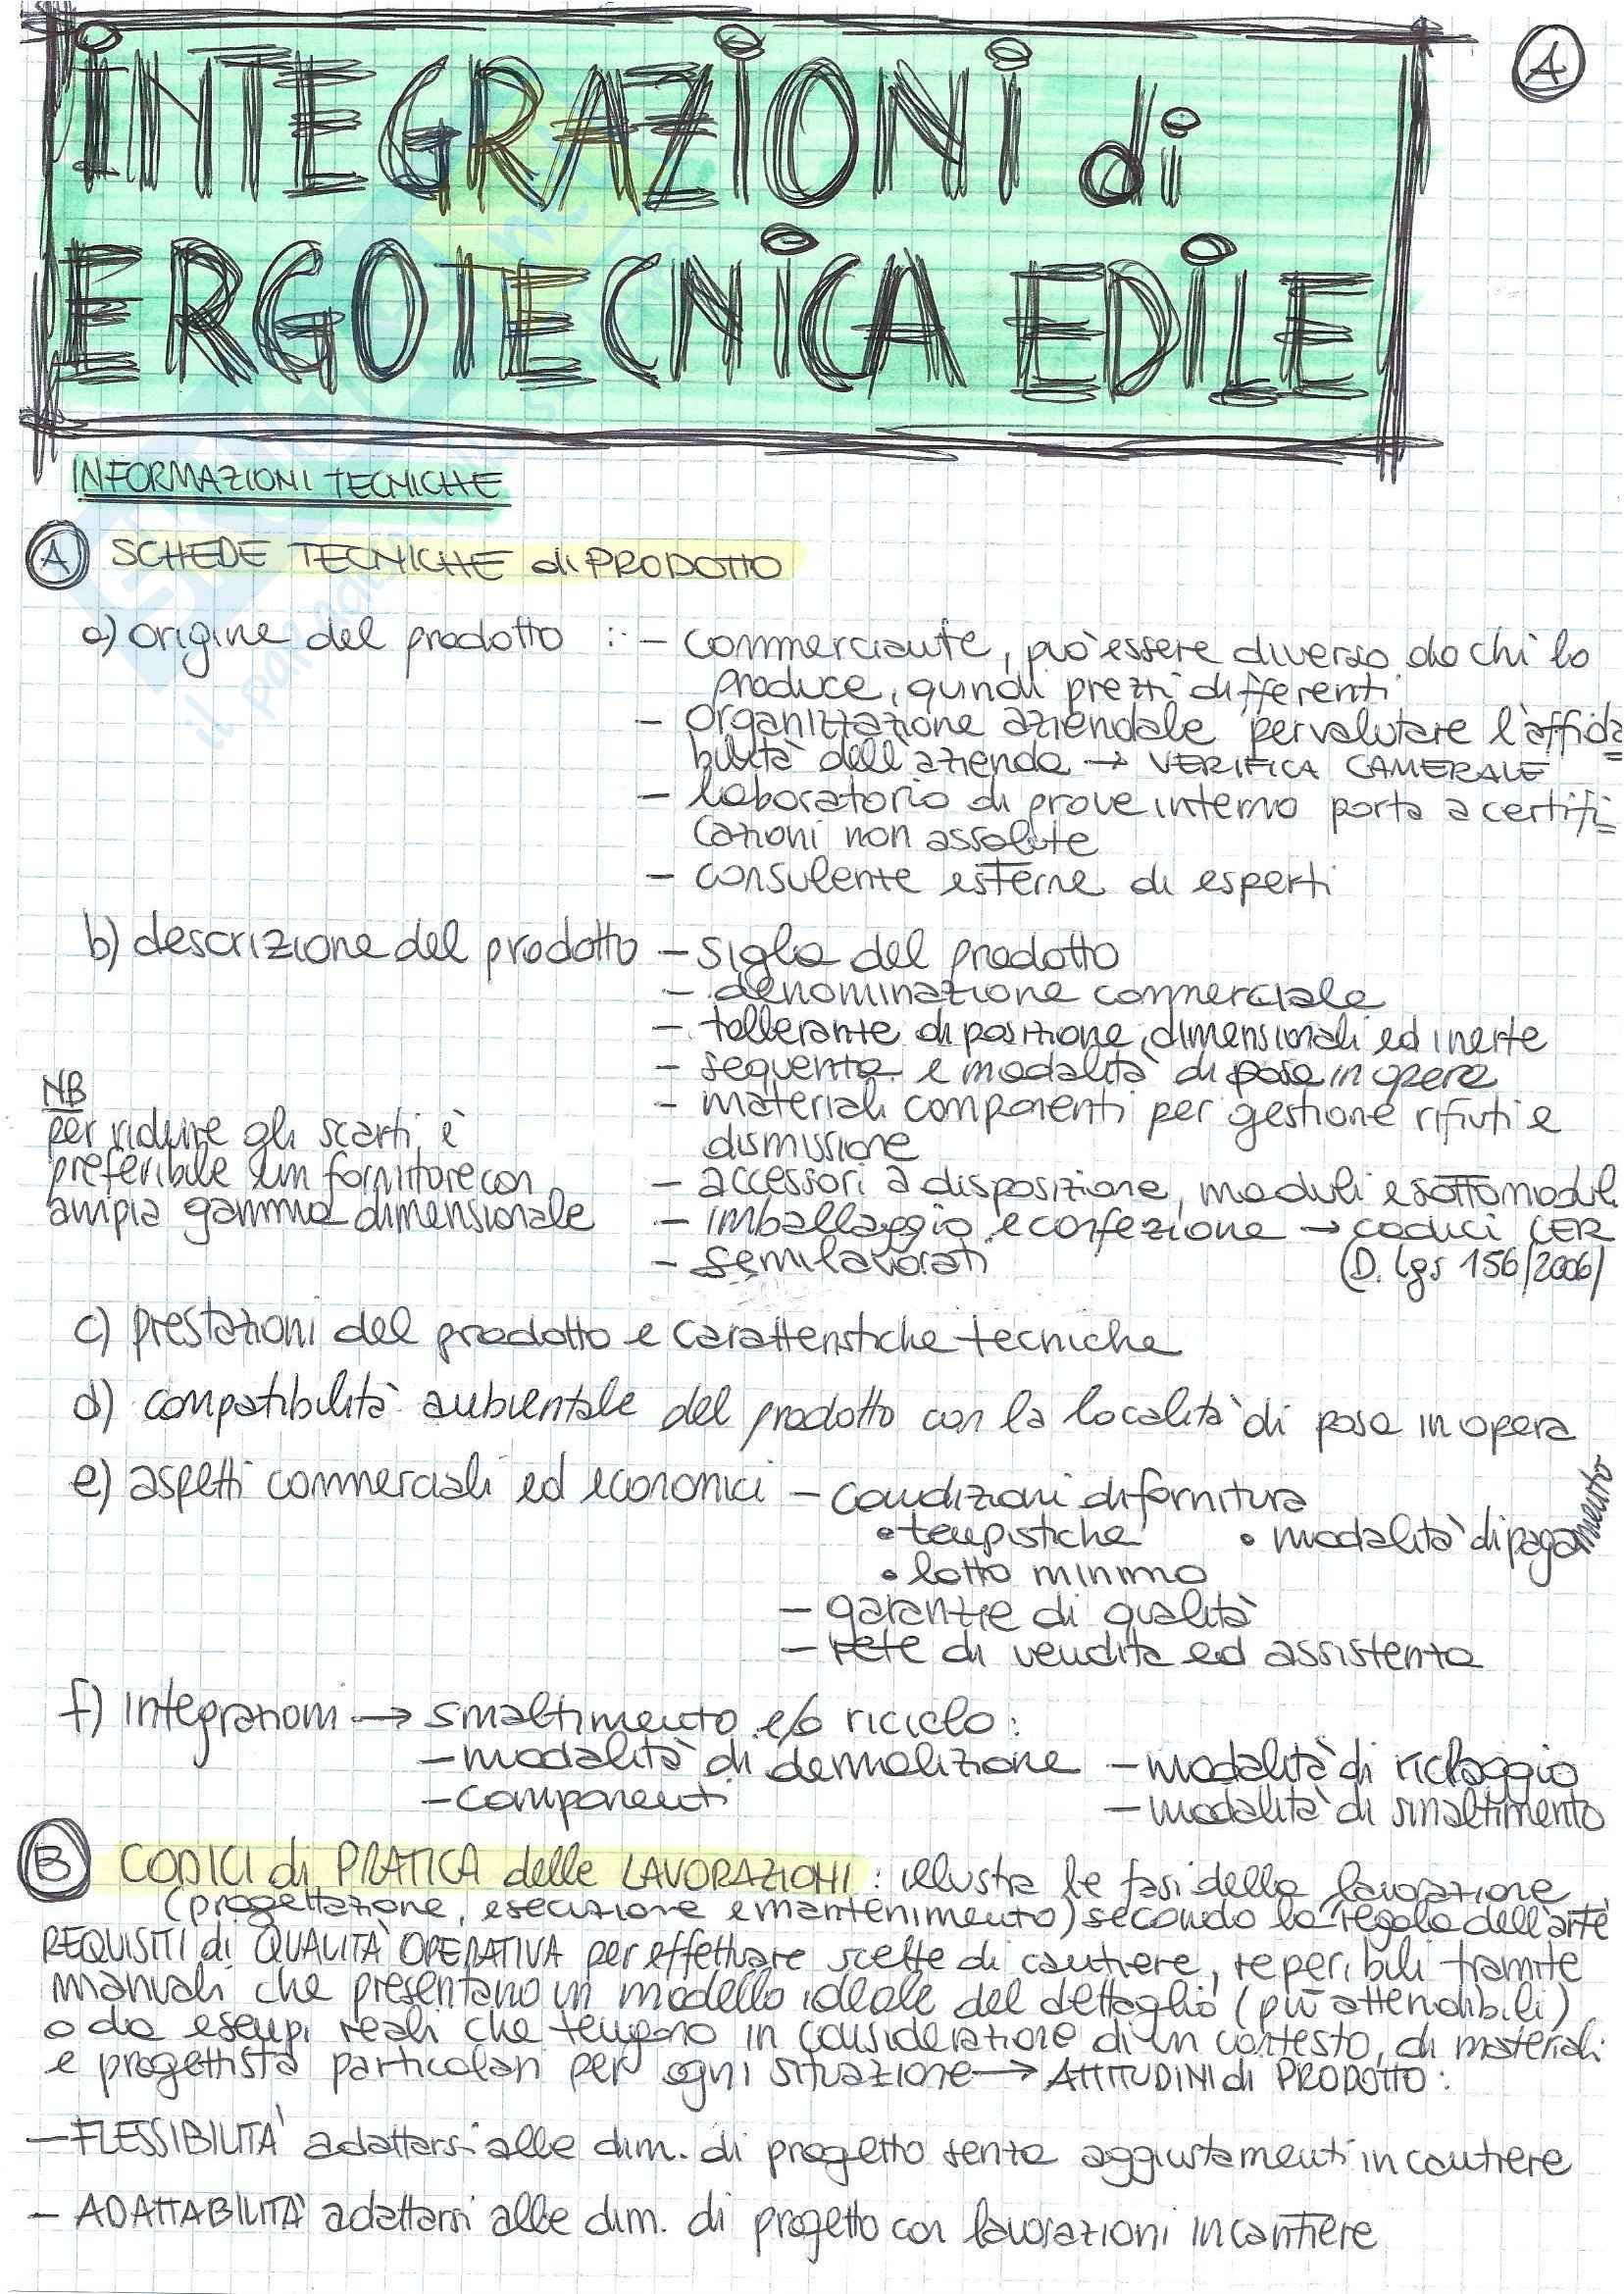 A
INTEGRAZIONI di
ERGOTECNICA EDILE
INFORMAZIONI TECNICHE
A SCHEDE TECNICHE di PRODOTTO
a) origine del prodotto : - commerciante, può essere diverso da chi lo
produce, quindi prezzi differenti
- organizzazione aziendale per valutare l'affida
bilità dell'azienda → VERIFICA CAMERALE
- laboratorio di prove interno porta a certifi
cazioni non assolute
- consulente esterne di esperti
b) descrizione del prodotto - sigla del prodotto
- denominazione commerciale
- tolleranze di posizione, dimensionali ed inerte
- sequenza e modalità di posa in opera
- materiali componenti per gestione rifiuti e
dismissione
- accessori a disposizione, moduli e sottomoduli
- imballaggio e confezione → codici CER
(D. lgs 156/2006)
- semilavorati
NB
per ridurre gli scarti è
preferibile un fornitore con
ampia gamma dimensionale
c) prestazioni del prodotto e caratteristiche tecniche
d) compatibilità ambientale del prodotto con la località di posa in opera
e) aspetti commerciali ed economici - condizioni di fornitura
• tempistiche • modalità di pagamento
• lotto minimo
- garanzie di qualità
- rete di vendita ed assistenza
f) integrazioni → smaltimento e/o riciclo:
- modalità di demolizione - modalità di riclaggio
- componenti - modalità di smaltimento
B CODICI di PRATICA delle LAVORAZIONI : illustra le fasi della lavorazione
(progettazione, esecuzione e mantenimento) secondo la regola dell'arte
REQUISITI di QUALITÀ OPERATIVA per effettuare scelte di cantiere, reperibili tramite
manuali che presentano un modello ideale del dettaglio (più attendibili)
o da esempi reali che tengono in considerazione di un contesto, di materiali
e progettista particolari per ogni situazione → ATTITUDINI di PRODOTTO :
- FLESSIBILITÀ adattarsi alle dim. di progetto senza aggiustamenti in cantiere
- ADATTABILITÀ adattarsi alle dim. di progetto con lavorazioni in cantiere